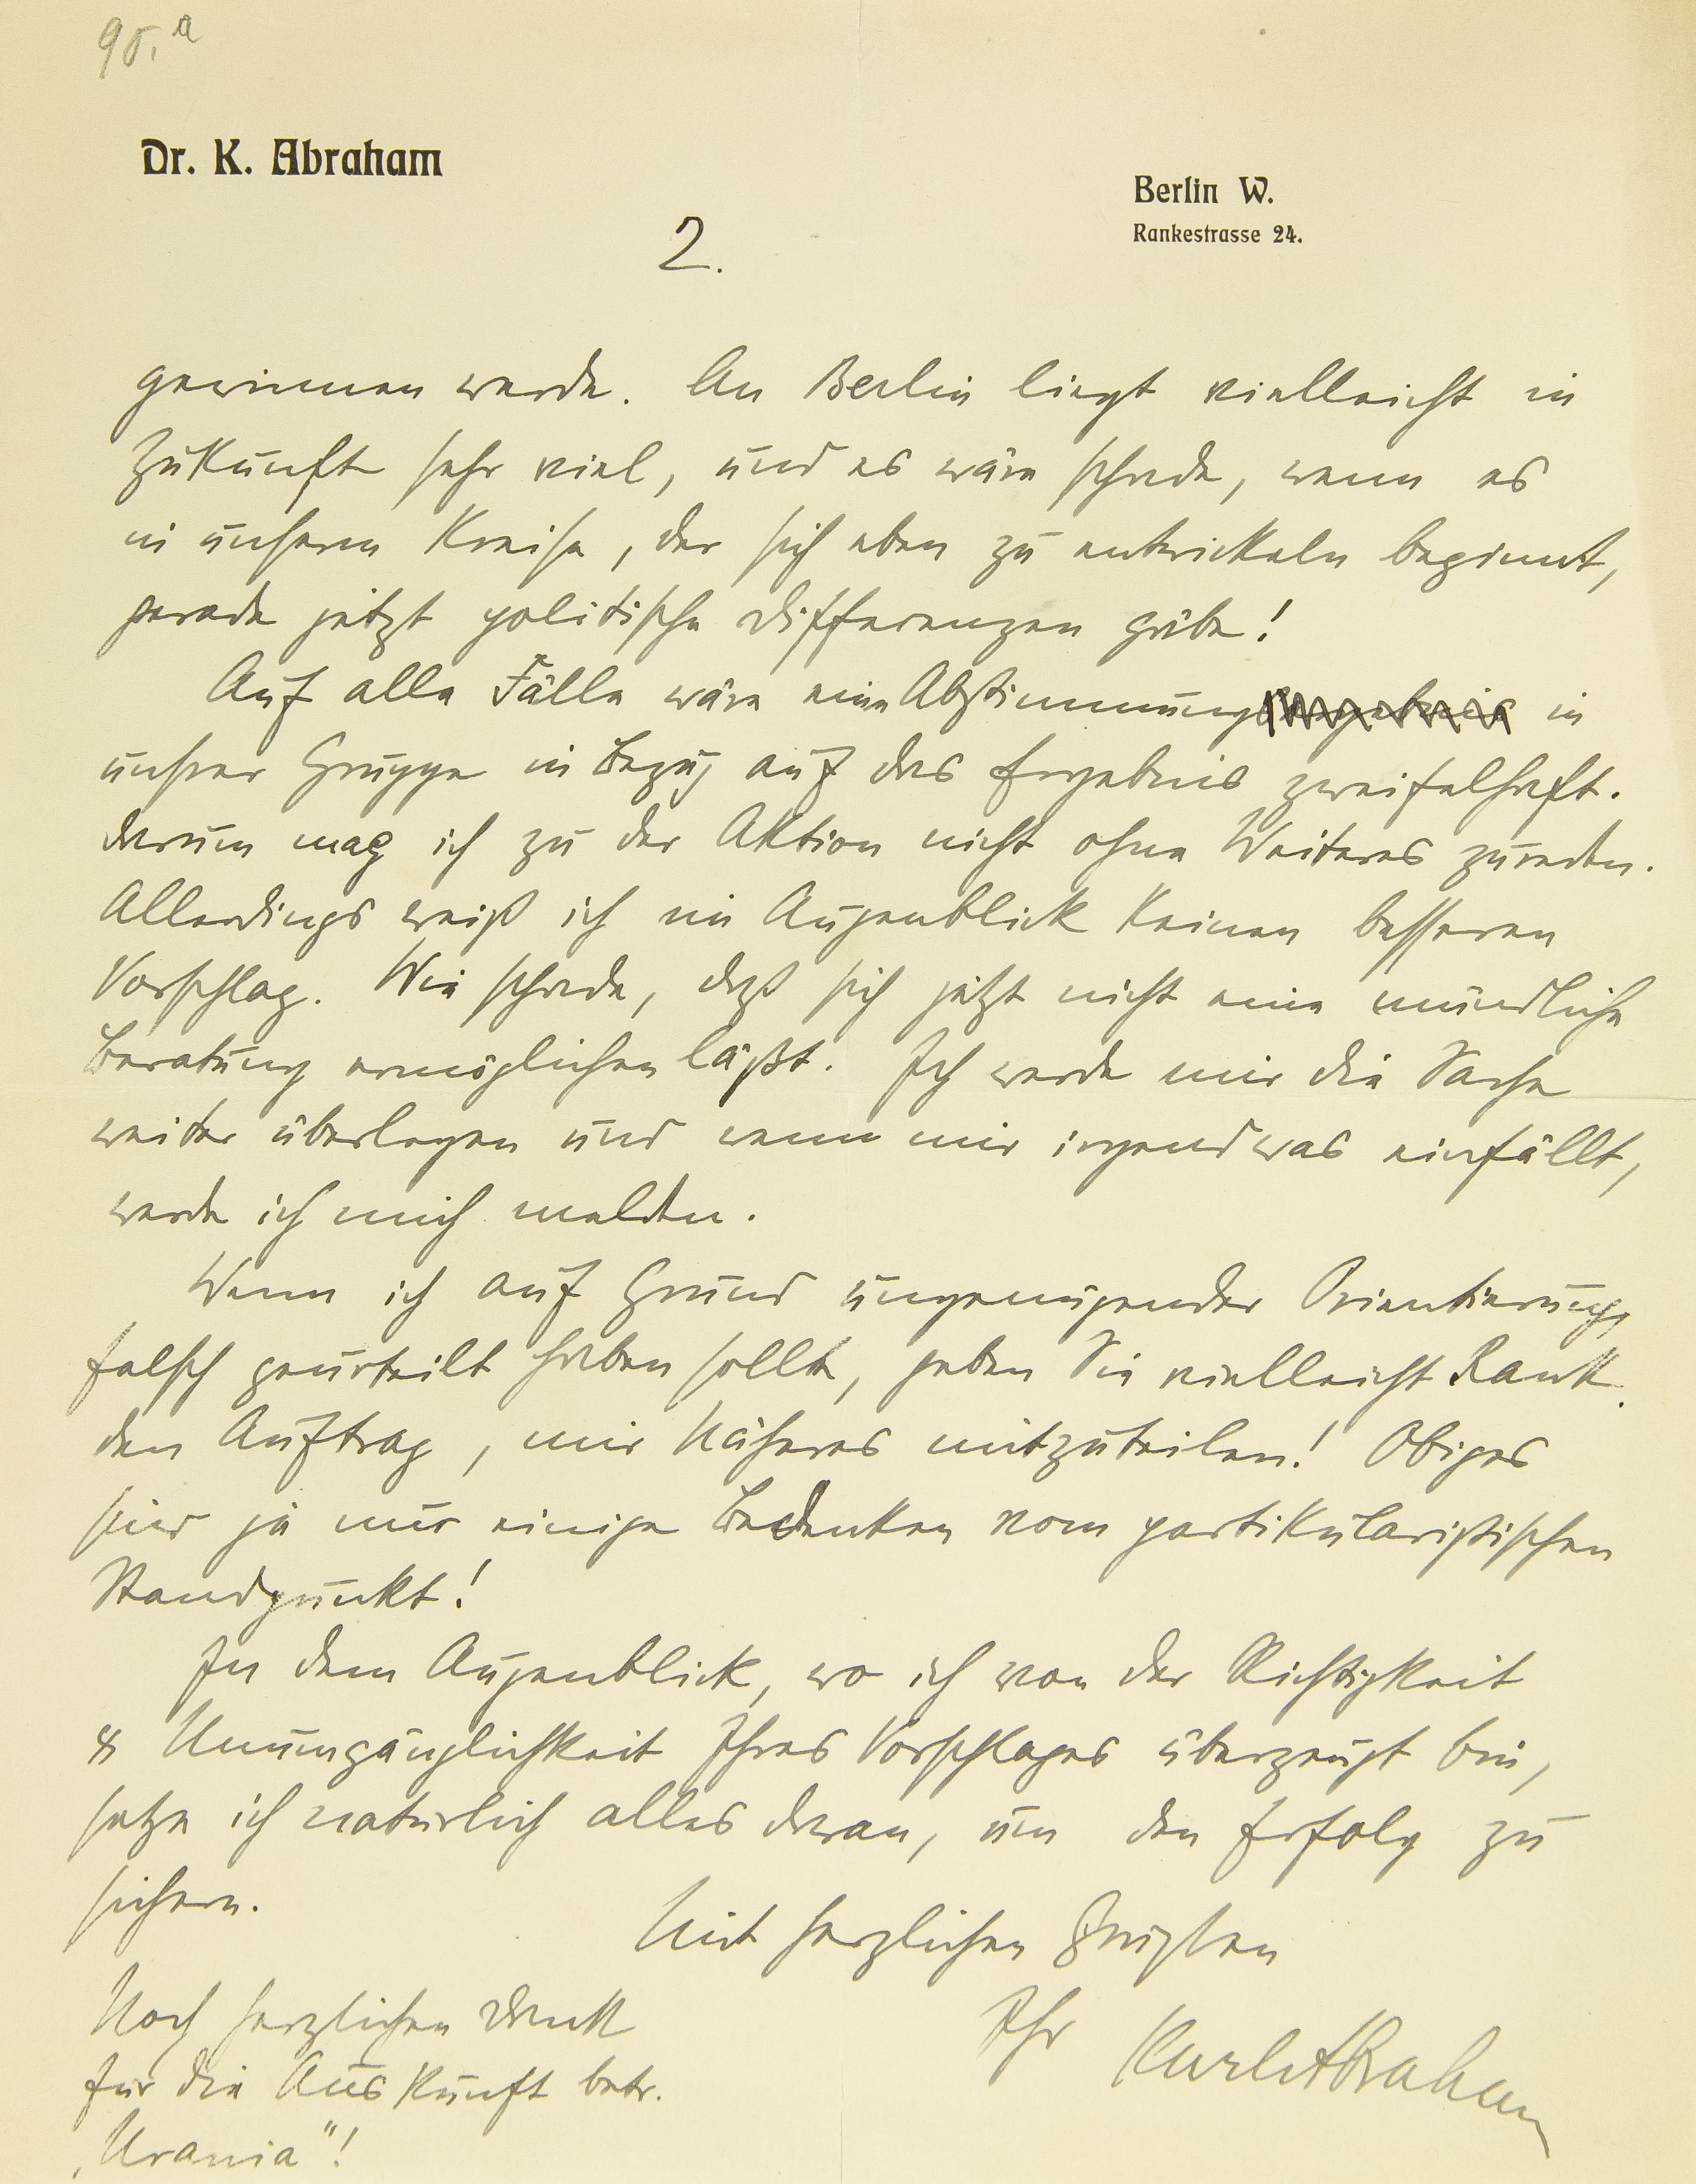 90.a
Dr. K. Abraham
Berlin W.
Rankestrasse 24.
2.
gewinnen werde. An Berlin liegt vielleicht in
Zukunft sehr viel, und es wäre schade, wenn es
in unserm Kreise, der sich eben zu entwickeln beginnt,
gerade jetzt politische Differenzen gäbe!
Auf alle Fälle wäre eine Abstimmung in
unsrer Gruppe in Bezug auf das Ergebnis zweifelhaft.
Darum mag ich zu der Aktion nicht ohne Weiteres zureden.
Allerdings weiß ich im Augenblick keinen besseren
Vorschlag. Wie schade, daß sich jetzt nicht eine mündliche
Beratung ermöglichen läßt. Ich werde mir die Sache
weiter überlegen und wenn mir irgend was einfällt,
werde ich mich melden.
Wenn ich auf Grund ungenügender Orientierung
falsch geurteilt haben sollte, geben Sie vielleicht Rank
den Auftrag, mir Näheres mitzuteilen! Obiges
sind ja nur einige Bedenken vom partikularistischen
Standpunkt!
In dem Augenblick, wo ich von der Richtigkeit
& Unumgänglichkeit Ihres Vorschlages überzeugt bin,
setze ich natürlich alles daran, um den Erfolg zu
sichern.
Mit herzlichen Grüßen
Ihr Karl Abraham
Noch herzlichen Dank
für die Auskunft betr.
„Urania"!